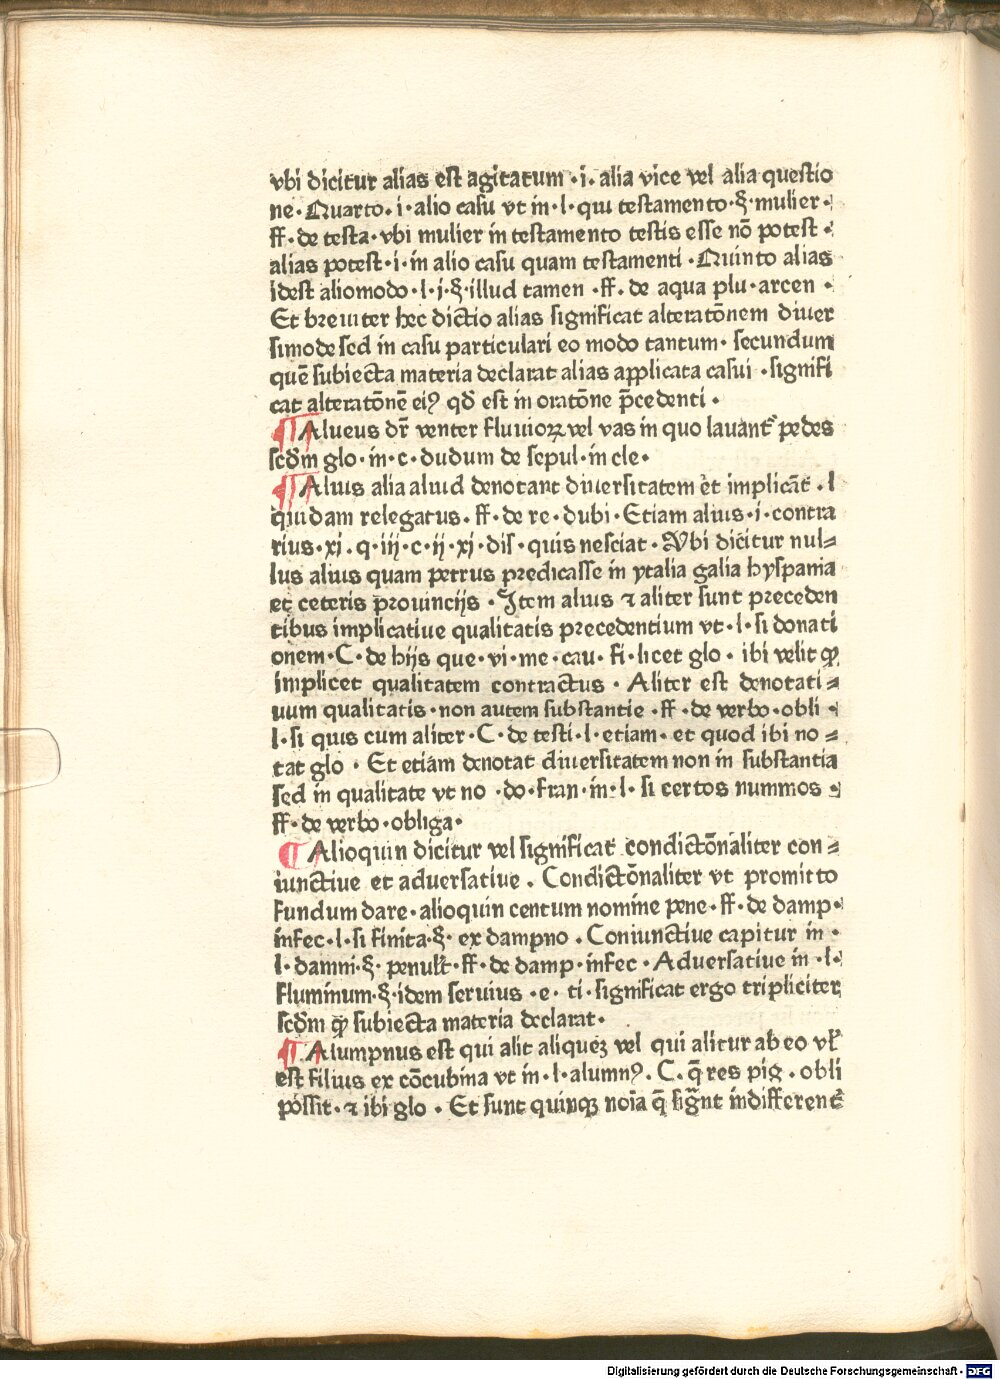 vbi dicitur alias est agitatum ·i· alia vice vel alia questio
ne· Quarto· i· alio casu vt in· l· qui testamento· §· mulier·
ff· de testa· vbi mulier in testamento testis esse nō potest ·
alias potest· i· in alio casu quam testamenti · Quinto alias
idest aliomodo· l· j· §· illud tamen · ff· de aqua plu· arcen ·
Et breuiter hec dictio alias significat alteratōnem diuer
simode sed in casu particulari eo modo tantum· secundum
quē subiecta materia declarat alias applicata casui · signifi
cat alteratōnē eiꝰ qd̄ est in oratōne p̄cedenti ·
¶ Alueus dr̄ venter fluuioꝝ vel vas in quo lauant᷑ pedes
scd̄m glo· in· c· dudum de sepul· in cle·
¶ Alius alia aliud denotant diuersitatem et implicāt · l
quidam relegatus· ff· de re· dubi· Etiam alius· i· contra
rius· xi· q· iij· c· ij· xi· dis· quis nesciat · Vbi dicitur nul⸗
lus alius quam petrus predicasse in ytalia galia hyspania
et ceteris prouincijs · Item alius ⁊ aliter sunt preceden
tibus implicatiue qualitatis precedentium vt· l· si donati
onem· C· de hijs que· vi· me· cau· fi· licet glo · ibi velit ꝙ
implicet qualitatem contractus · Aliter est denotati⸗
uum qualitatis· non autem substantie · ff· de verbo· obli·
l· si quis cum aliter· C· de testi· l· etiam· et quod ibi no⸗
tat glo · Et etiam denotat diuersitatem non in substantia
sed in qualitate vt no · do· fran· in· l· si certos nummos ·
ff· de verbo· obliga·
¶ Alioquin dicitur vel significat condictōnaliter con⸗
iunctiue et aduersatiue · Condictōnaliter vt promitto
fundum dare· alioquin centum nomine pene· ff· de damp·
infec· l· si finita· §· ex dampno · Coniunctiue capitur in ·
l· damni· §· penult̄· ff· de damp· infec · Aduersatiue in · l·
fluminum· §· idem seruius · e · ti· significat ergo tripliciter
scd̄m ꝙ subiecta materia declarat·
¶ Alumpnus est qui alit aliquēꝫ vel qui alitur ab eo vl̄
est filius ex cōcubina vt in· l· alumnꝰ · C· q̄ res pig · obli
possit· ⁊ ibi glo · Et sunt quinqꝫ noīa q̄ sign̄t indifferent᷑
Digitalisierung gefördert durch die Deutsche Forschungsgemeinschaft - DFG